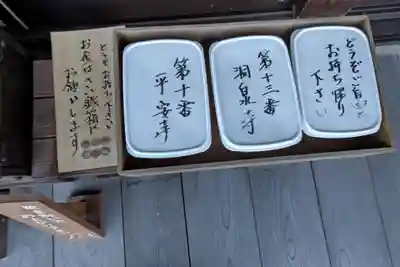 どうぞお持ち下さい
お金はさい銭箱に
お願いします
第十番
平安寺
第十三番
洞泉寺
どうぞご自由に
お持ち帰り
下さい